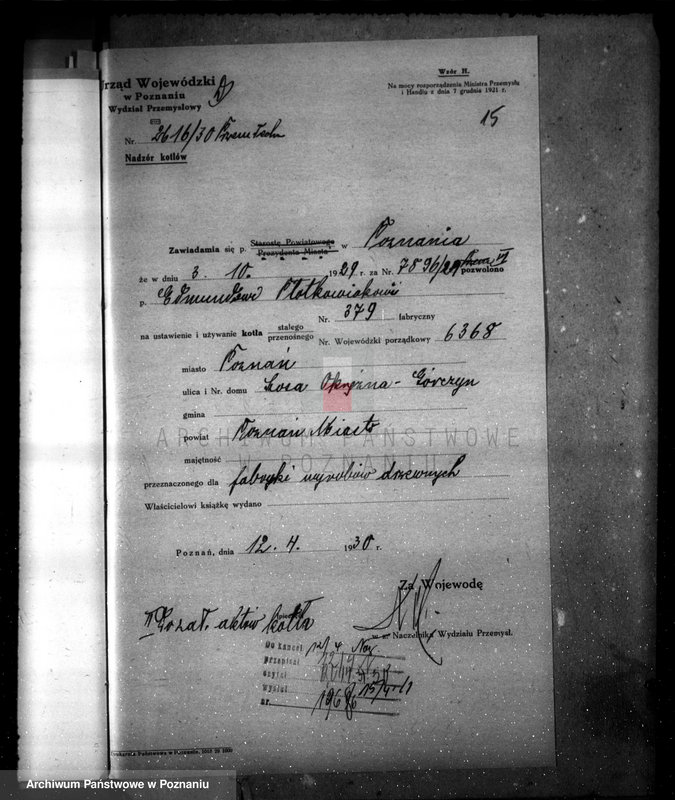 Urząd Wojewódzki
w Poznaniu
Wydział Przemysłowy
Wzór H.
Na mocy rozporządzenia Ministra Przemysłu
i Handlu z dnia 7 grudnia 1921 r.
15
Nr. 2616/30
Nadzór kotłów
Zawiadamia się p. Starostę Powiatowego
Prezydenta Miasta w Poznania
że w dniu 3. 10. 1929 r. za Nr. 7896/29 pozwolono
p. Edmundowi Płotkowiakowi
na ustawienie i używanie kotła stałego
przenośnego
Nr. 379 fabryczny
Nr. Wojewódzki porządkowy 6368
miasto Poznań
ulica i Nr. domu Szosa Okrężna - Górczyn
gmina
powiat Poznań Miasto
majętność
przeznaczonego dla fabryki wyrobów drzewnych
Właścicielowi książkę wydano
Poznań, dnia 12. 4. 1930 r.
Za Wojewodę
w z. Naczelnika Wydziału Przemysł.
II Do zał. aktów kotła
Do kancel. 12/4
przepisał
czytał
wysłał 15/4
nr.
Drukarnia Państwowa w Poznaniu.
ARCHIWUM PAŃSTWOWE
W POZNANIU
Archiwum Państwowe w Poznaniu